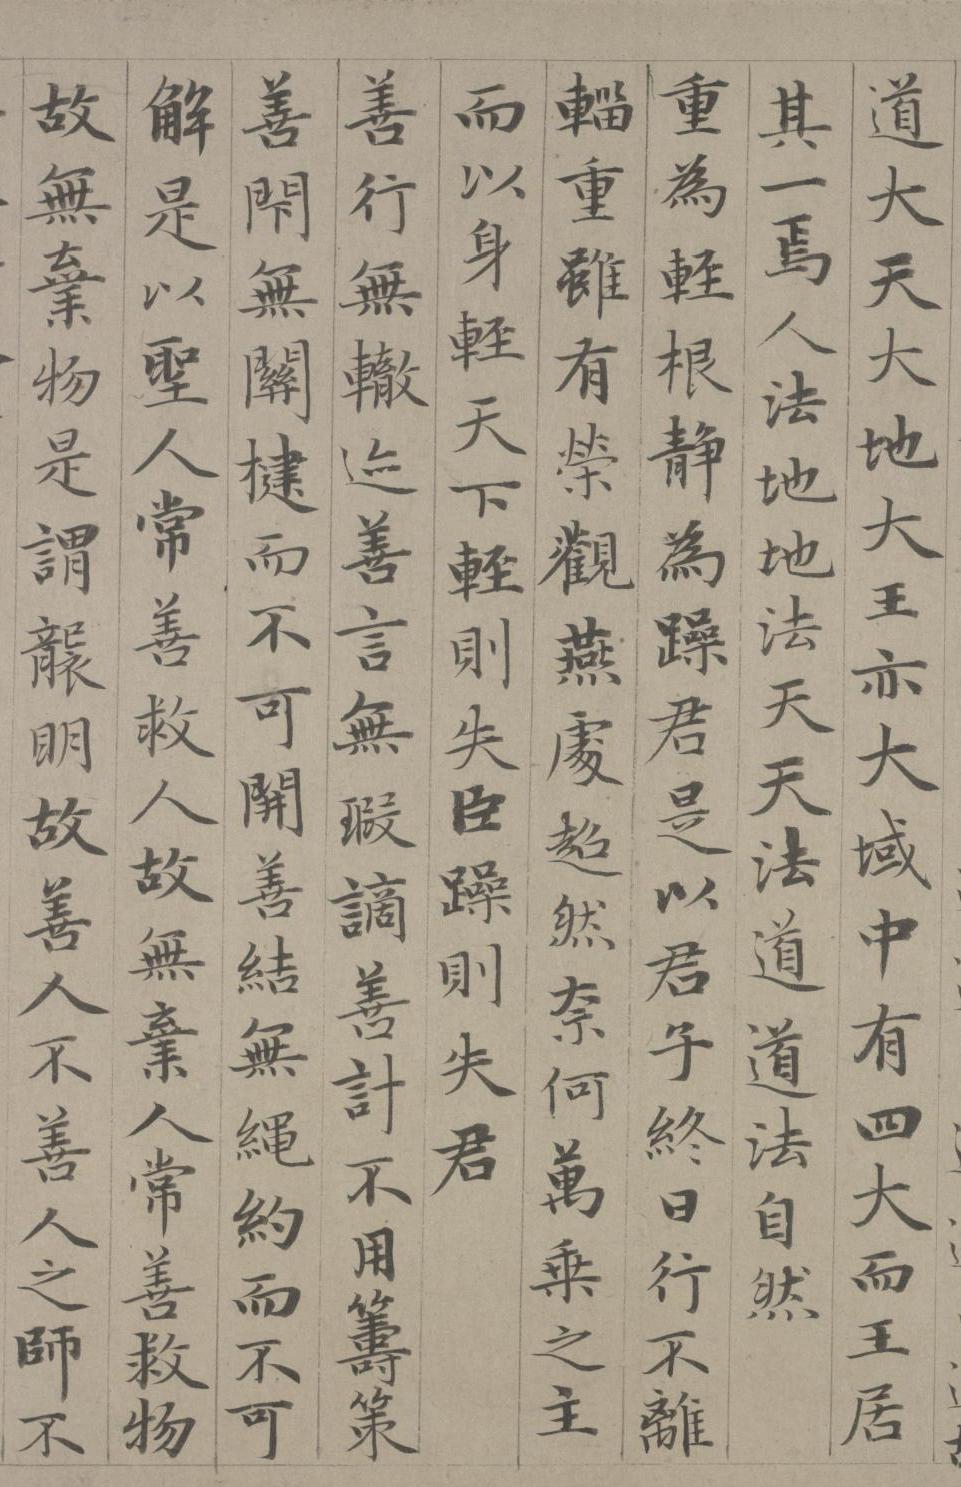 道大天大地大王亦大域中有四大而王居
其一焉人法地地法天天法道道法自然
重為輕根靜為躁君是以君子終日行不離
輜重雖有榮觀燕處超然柰何萬乘之主
而以身輕天下輕則失臣躁則失君
善行無轍迹善言無瑕謫善計不用籌策
善閇無關楗而不可開善結無繩約而不可
解是以聖人常善救人故無棄人常善救物
故無棄物是謂襲明故善人不善人之師不